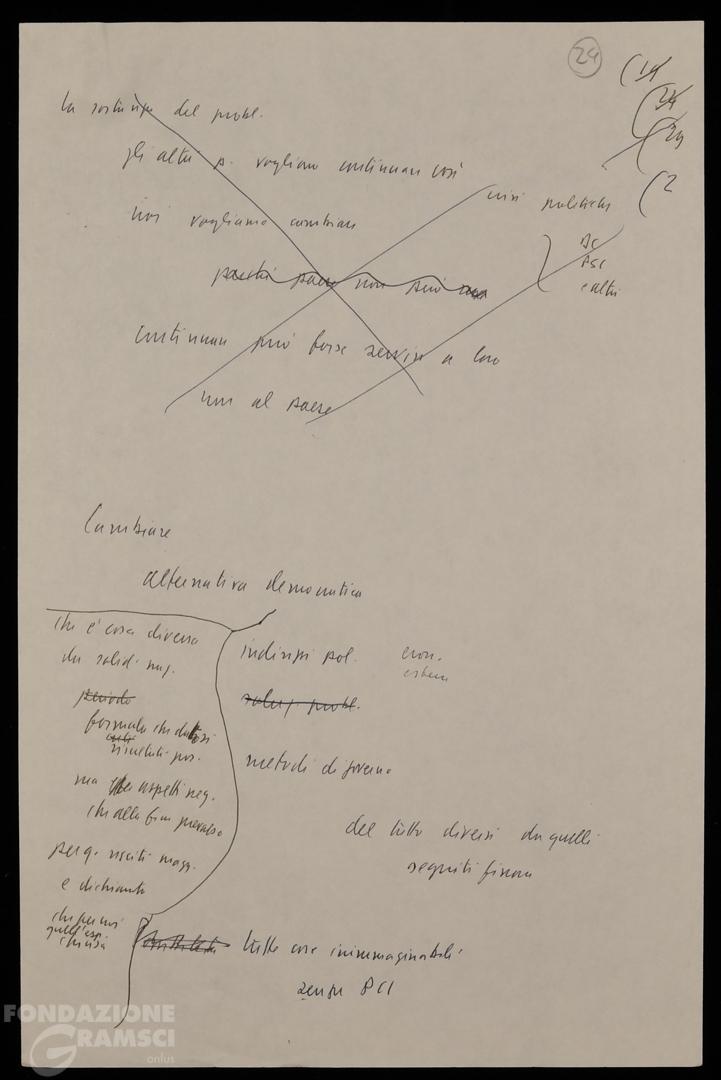 24
(14
(24
(29
(2
La sostanza del probl.
gli altri p. vogliono continuare così
noi vogliamo cambiare
crisi politiche
DC
PSI
e altri
questo paese non può
continuare può forse servire a loro
non al paese
Cambiare
alternativa democratica
che è cosa diversa
da solid. naz.
periodo
formula che dette sì
risultati pos.
ma aspetti neg.
che alla fine prevalse
per q. usciti magg.
e dichiarato
che per noi
quell'esp.
chiusa
indirizzi pol.
econ.
estera
soluz. probl.
metodi di governo
del tutto diversi da quelli
seguiti finora
tutte cose inimmaginabili
senza PCI
FONDAZIONE
GRAMSCI
onlus